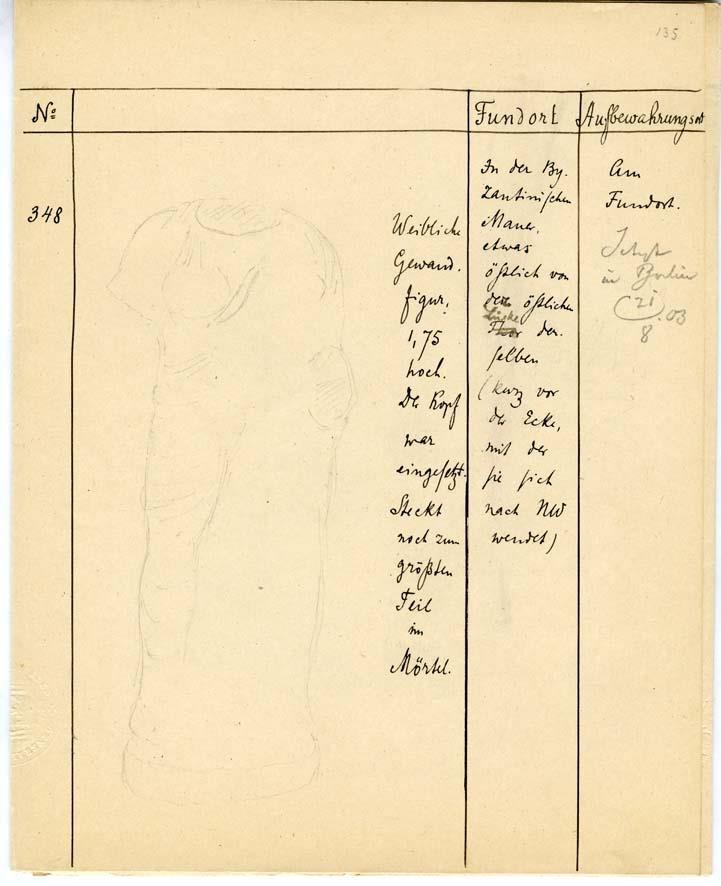 135
No Fundort Aufbewahrungsort
348
Weibliche
Gewand-
figur,
1,75
hoch.
Der Kopf
war
eingesetzt.
Steckt
noch zum
größten
Teil
im
Mörtel.
In der By-
zantinischen
Mauer,
etwas
östlich von
der östlichen
Lücke
Thor der-
selben
(kurz vor
der Ecke,
mit der
sie sich
nach NW
wendet)
Am
Fundort.
Jetzt
in Berlin
21
8 .03